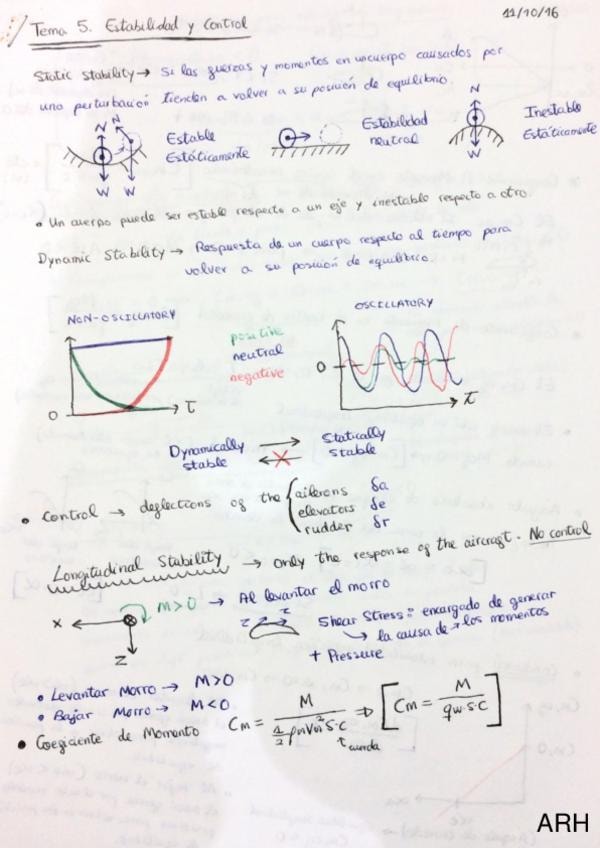 Tema 5. Estabilidad y Control
11/10/16
Static Stability → Si las fuerzas y momentos en un cuerpo causados por
una perturbación tienden a volver a su posición de equilibrio.
N N
W W
Estable
Estáticamente
Estabilidad
neutral
N
W
Inestable
Estáticamente
• Un cuerpo puede ser estable respecto a un eje y inestable respecto a otro.
Dynamic Stability → Respuesta de un cuerpo respecto al tiempo para
volver a su posición de equilibrio.
NON-OSCILLATORY
0
τ
positive
neutral
negative
OSCILLATORY
0
τ
Dynamically
stable
Statically
stable
• Control → deflections of the { ailerons δa
elevators δe
rudder δr
Longitudinal Stability → only the response of the aircraft. No control
X
Z
M>0 → Al levantar el morro
τ τ τ
Shear Stress: encargado de generar
la causa de → los momentos
+ Pressure
• Levantar Morro → M>0
• Bajar Morro → M<0
• Coeficiente de Momento Cm = M / ½ρ∞V∞² S·c ⇒ [Cm = M / q∞·S·C]
cuerda
ARH